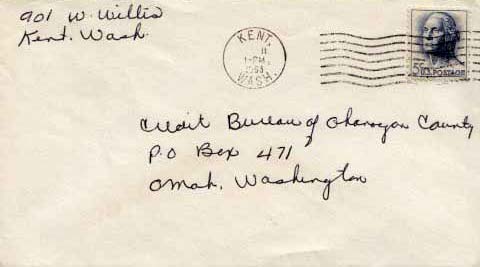 901 W. Willis
Kent, Wash.
KENT,
11
1-PM
1963
WASH.
5¢ U.S. POSTAGE
Credit Bureau of Okanogan County
P.O Box 471
Omak, Washington